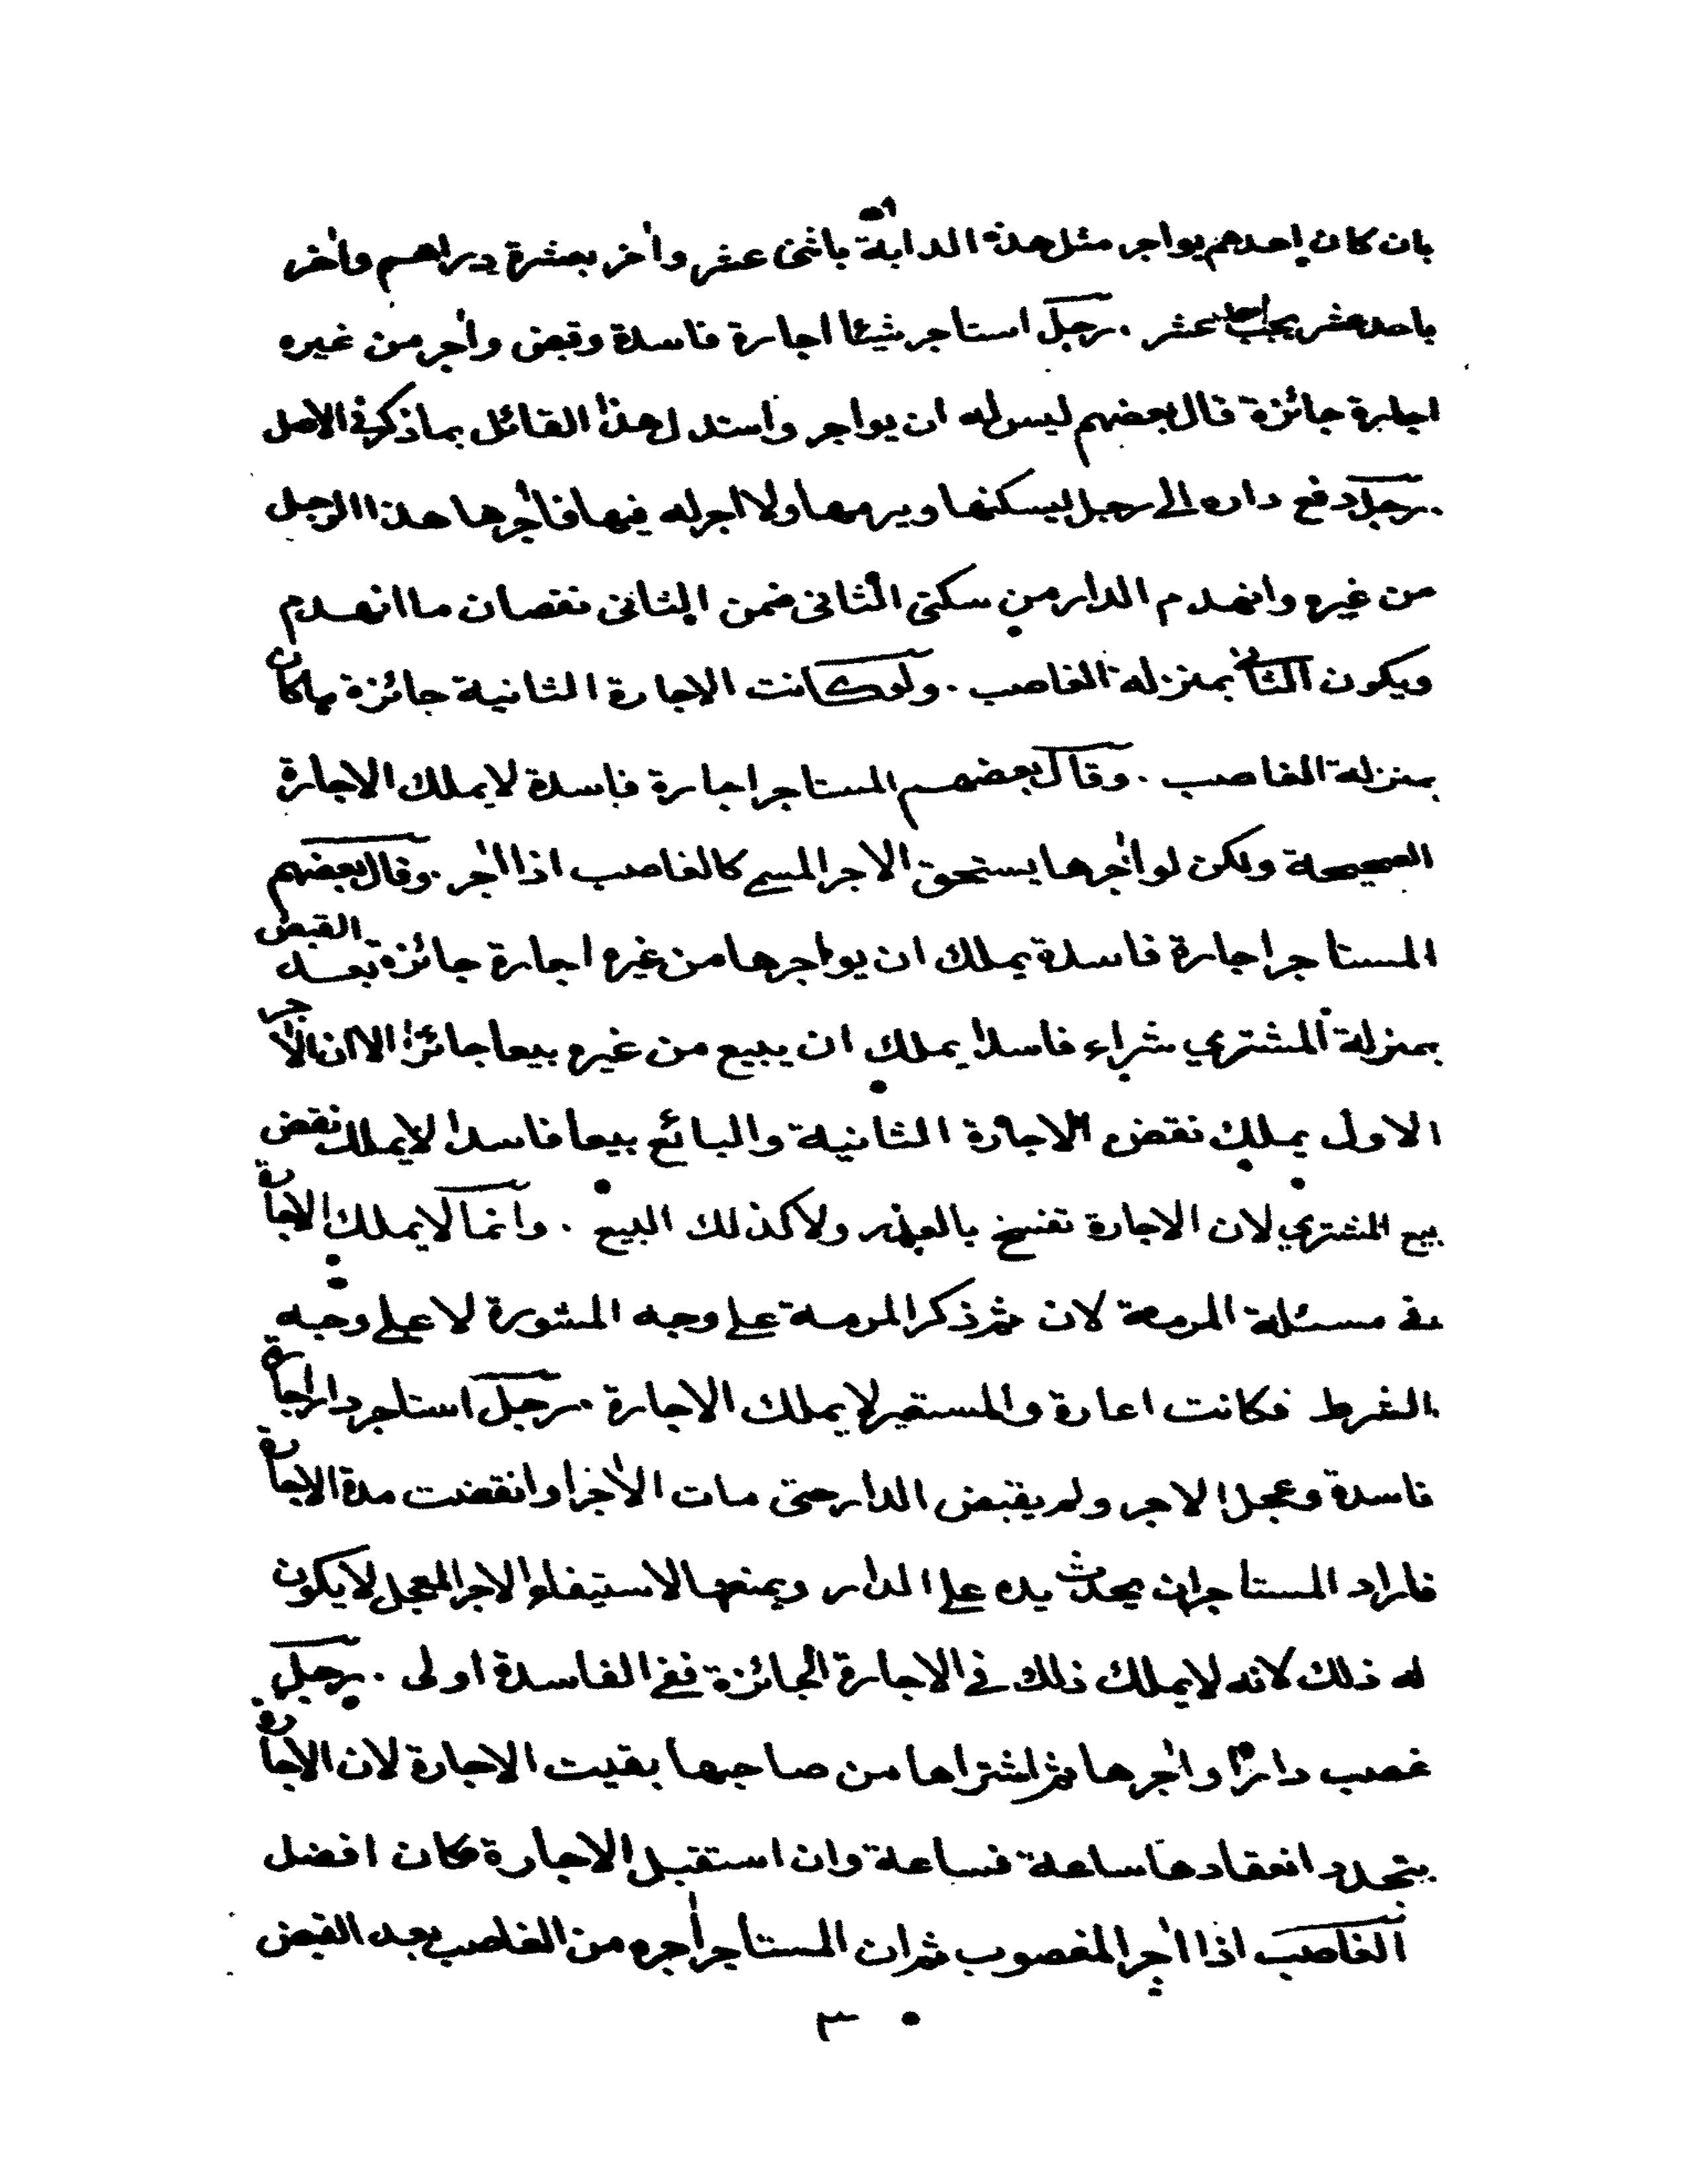 بان كان احدهم يواجر مثل هذه الدابة باثنى عشر واٰخر بعشرة دراهم واٰخر
باحد عشر يجب احد عشر . رجل استاجر شيئا اجارة فاسدة وقبض واٰجر من غيره
اجارة جائزة قال بعضهم ليس له ان يواجر واستدل هذا القائل بما ذكر في الاصل
رجل دفع داره الى رجل ليسكنها ويرمها ولا اجر له فيها فاٰجرها هذا الرجل
من غيره وانهدم الدار من سكنى الثانى ضمن الثانى نقصان ما انهدم
ويكون الثانى بمنزلة الغاصب . ولو كانت الاجارة الثانية جائزة ما كان
بمنزلة الغاصب . وقال بعضهم المستاجر اجارة فاسدة لا يملك الاجارة
الصحيحة ولكن لو اٰجرها يستحق الاجر المسمى كالغاصب اذا اٰجر . وقال بعضهم
المستاجر اجارة فاسدة يملك ان يواجرها من غيره اجارة جائزة بعد القبض
بمنزلة المشتري شراء فاسدا يملك ان يبيع من غيره بيعا جائزا الا ان الاٰجر
الاول يملك نقض الاجارة الثانية والبائع بيعا فاسدا لا يملك نقض
بيع المشتري لان الاجارة تفسخ بالعذر ولا كذلك البيع . وانما لا يملك الاجارة
في مسئلة المرمة لان ثم ذكر المرمة على وجه المشورة لا على وجه
الشرط فكانت اعارة والمستعير لا يملك الاجارة . رجل استاجر دارا اجارة
فاسدة وعجل الاجر ولم يقبض الدار حتى مات الاٰجر او انقضت مدة الاجارة
فاراد المستاجر ان يحدث يده على الدار ويمنعها لاستيفاء الاجر المعجل لا يكون
له ذلك لانه لا يملك ذلك في الاجارة الجائزة ففي الفاسدة اولى . رجل
غصب دارا واٰجرها ثم اشتراها من صاحبها بقيت الاجارة لان الاجارة
يتجدد انعقادها ساعة فساعة وان استقبل الاجارة فكان افضل
الغاصب اذا اٰجر المغصوب ثم ان المستاجر اٰجره من الغاصب بعد القبض
٣